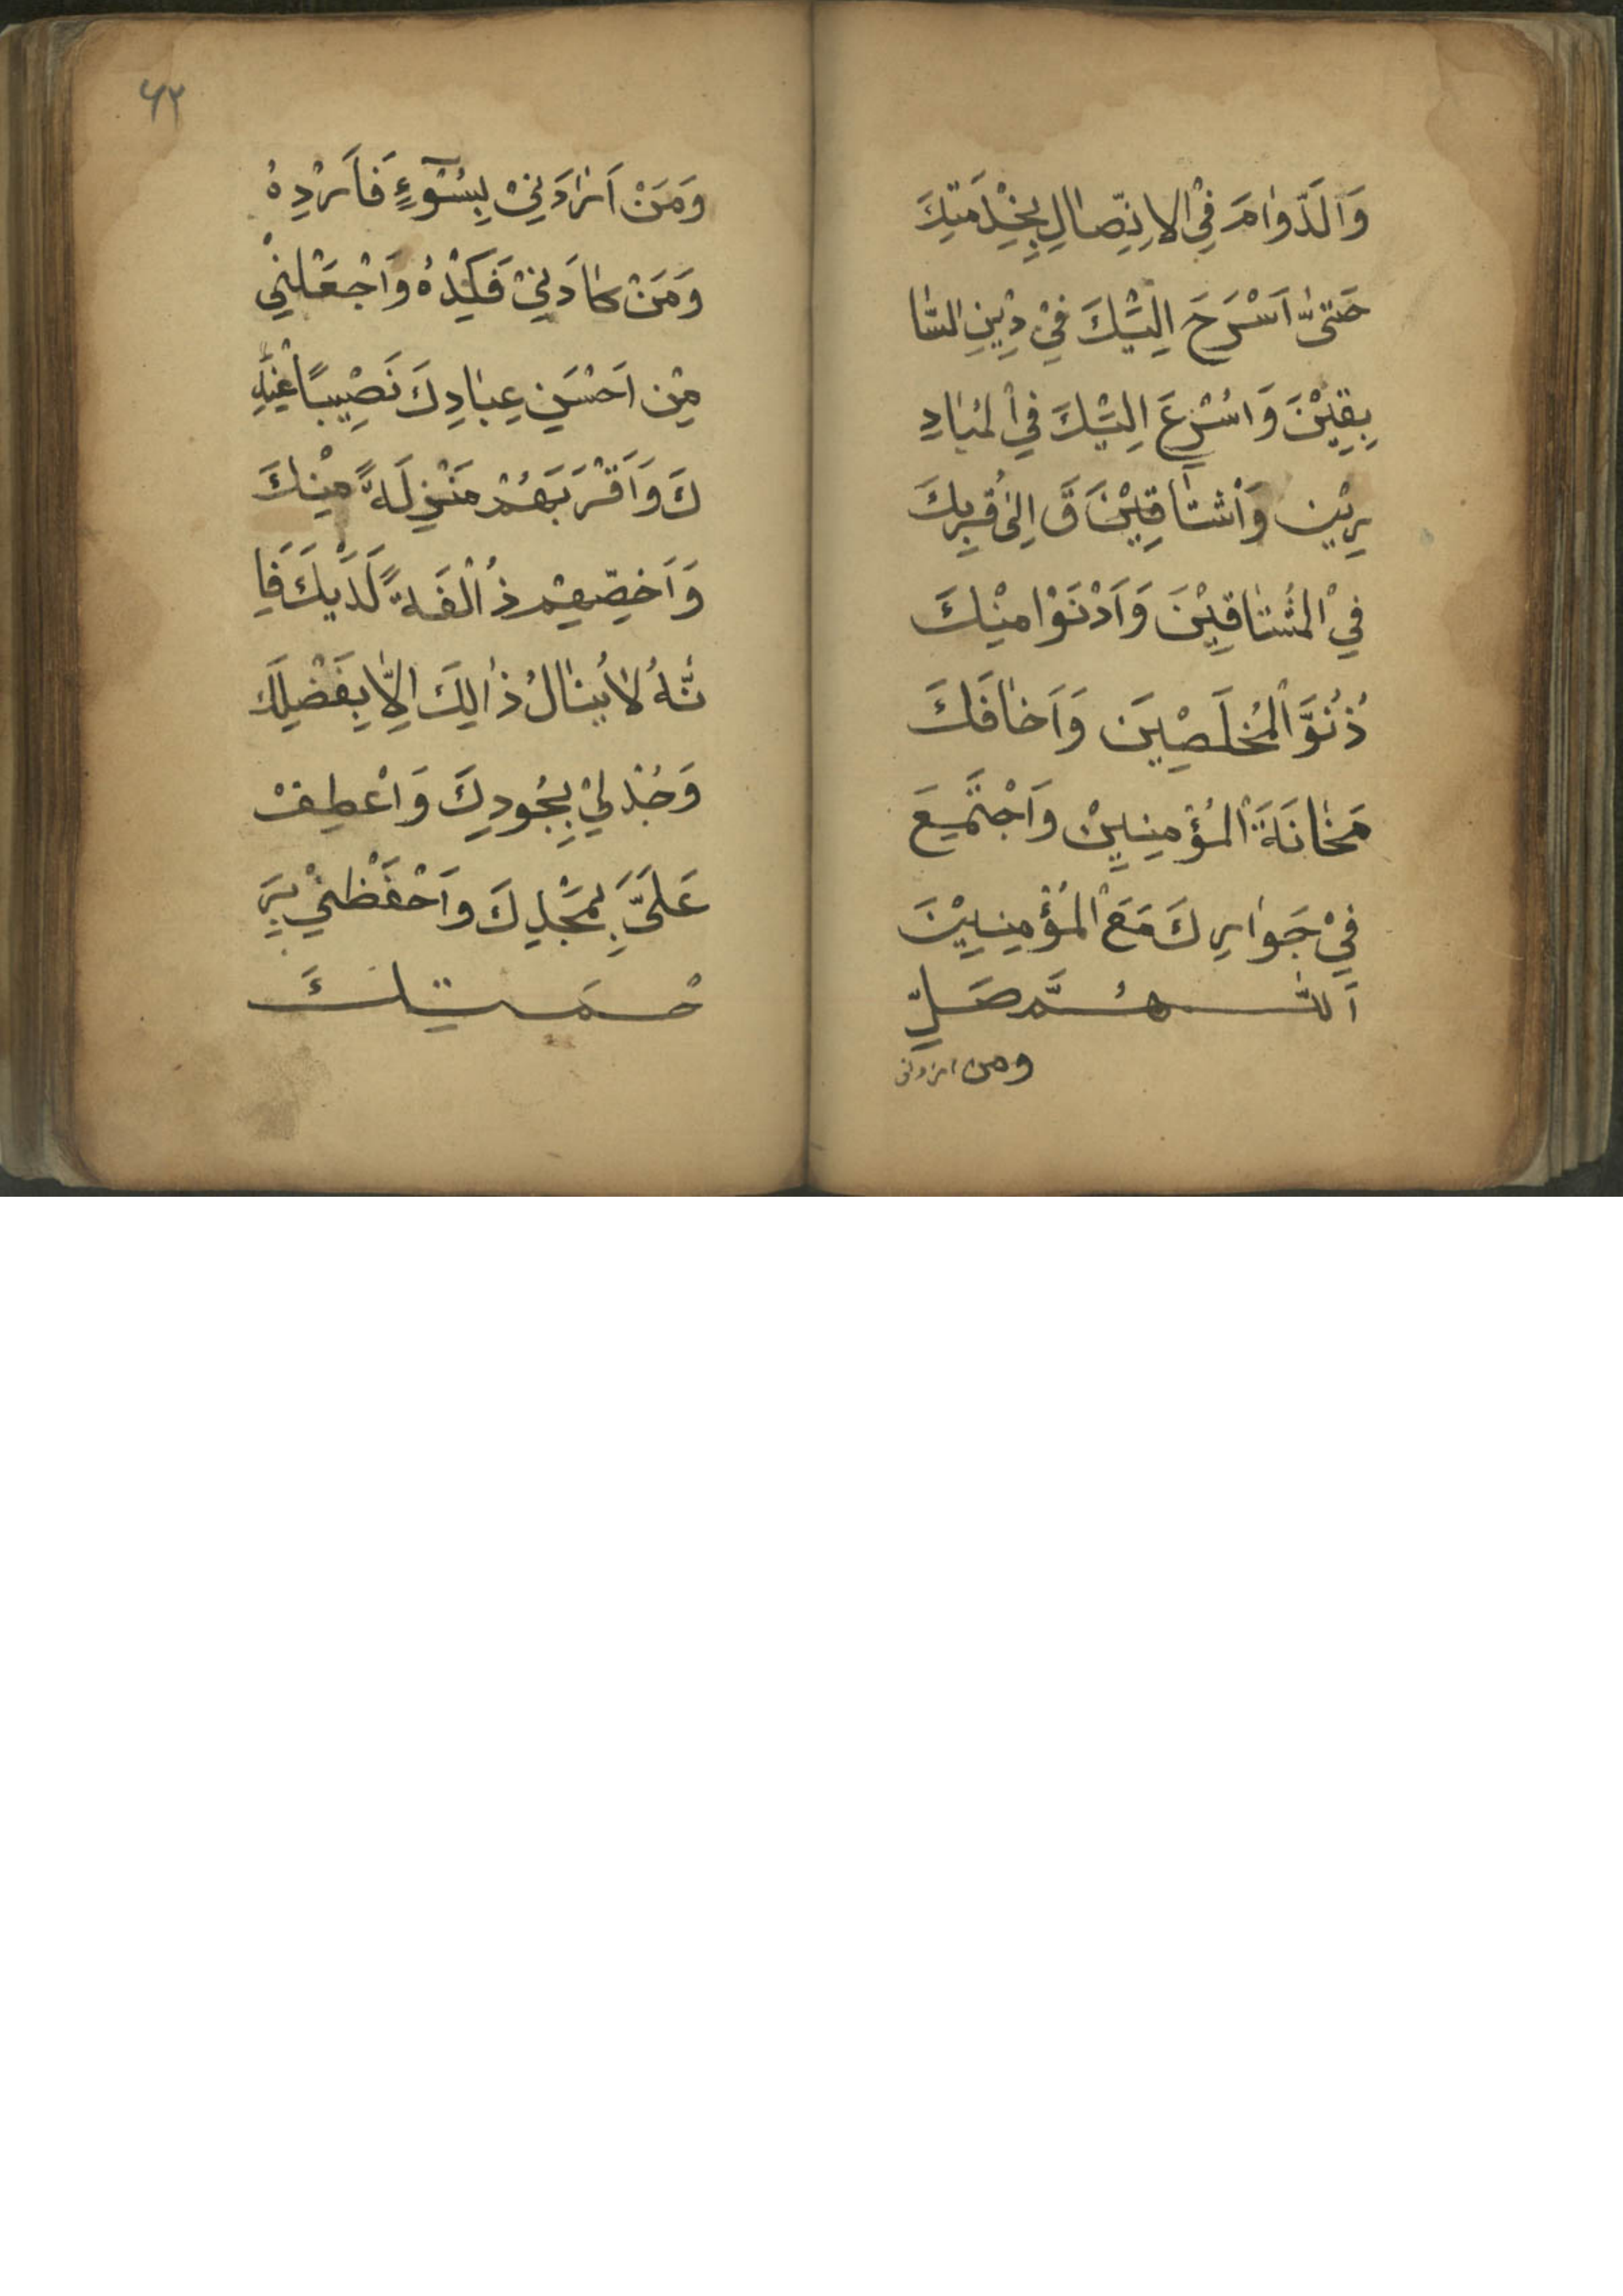 وَالَدَّوٰامَ فِيْ الاِتِّصٰالِ بِخِدْمَتِكَ
حَتىّٰ اَسْرَحَ اِلَيْكَ فِيْ دِيْنِ السّٰا
بِقِيْنَ وَاُسْرِعَ اِلَيْكَ فِي الْمُبٰادِ
رِيْنِ وَاَشْتٰاقِيْنَ قَ اِلىٰ قُرِبِكَ
فِي الْمُشْتٰاقِيْنَ وَاَدْنَوْا مِنْكَ
دُنُوَّ الْمُخْلَصِيْنَ وَاَخٰافَكَ
مَخٰانَةَ الْمُؤْمِنِيِنْ وَاَجْتَمِيعَ
فِيْ جَوٰارِكَ مَعَ الْمُؤْمِنِيِيْنَ
اَللّٰهُمَّ صَلِّ
ومن ارادنى
٦٢
وَمَنْ اَرٰادَنِيْ بِسُوْٓءٍ فَاَرْدِهُ
وَمَنْ كٰادَنِيْ فَكِيْدْهُ وَاَجْعَلْنِيْ
مِنْ اَحْسَنِ عِبٰادِكَ نَصِيْبًا عِنْدَ
كَ وَاَقْرَبَهُمْ مَنْزِلَةً مِنْكَ
وَاَخِصِّهِمْ ذُ الْفَةً لَدَيْكَ فَاِ
نَّهُ لاٰ يُنٰالُ ذٰالِكَ اِلاّٰ بِفَضْلِكَ
وَجُدْلِيْ بِجُودِكَ وَاعْطِفْ
عَلَيَّ بِمَجْدِكَ وَاَحْفَظْنِيْ بِرَ
حْمَتِكَ